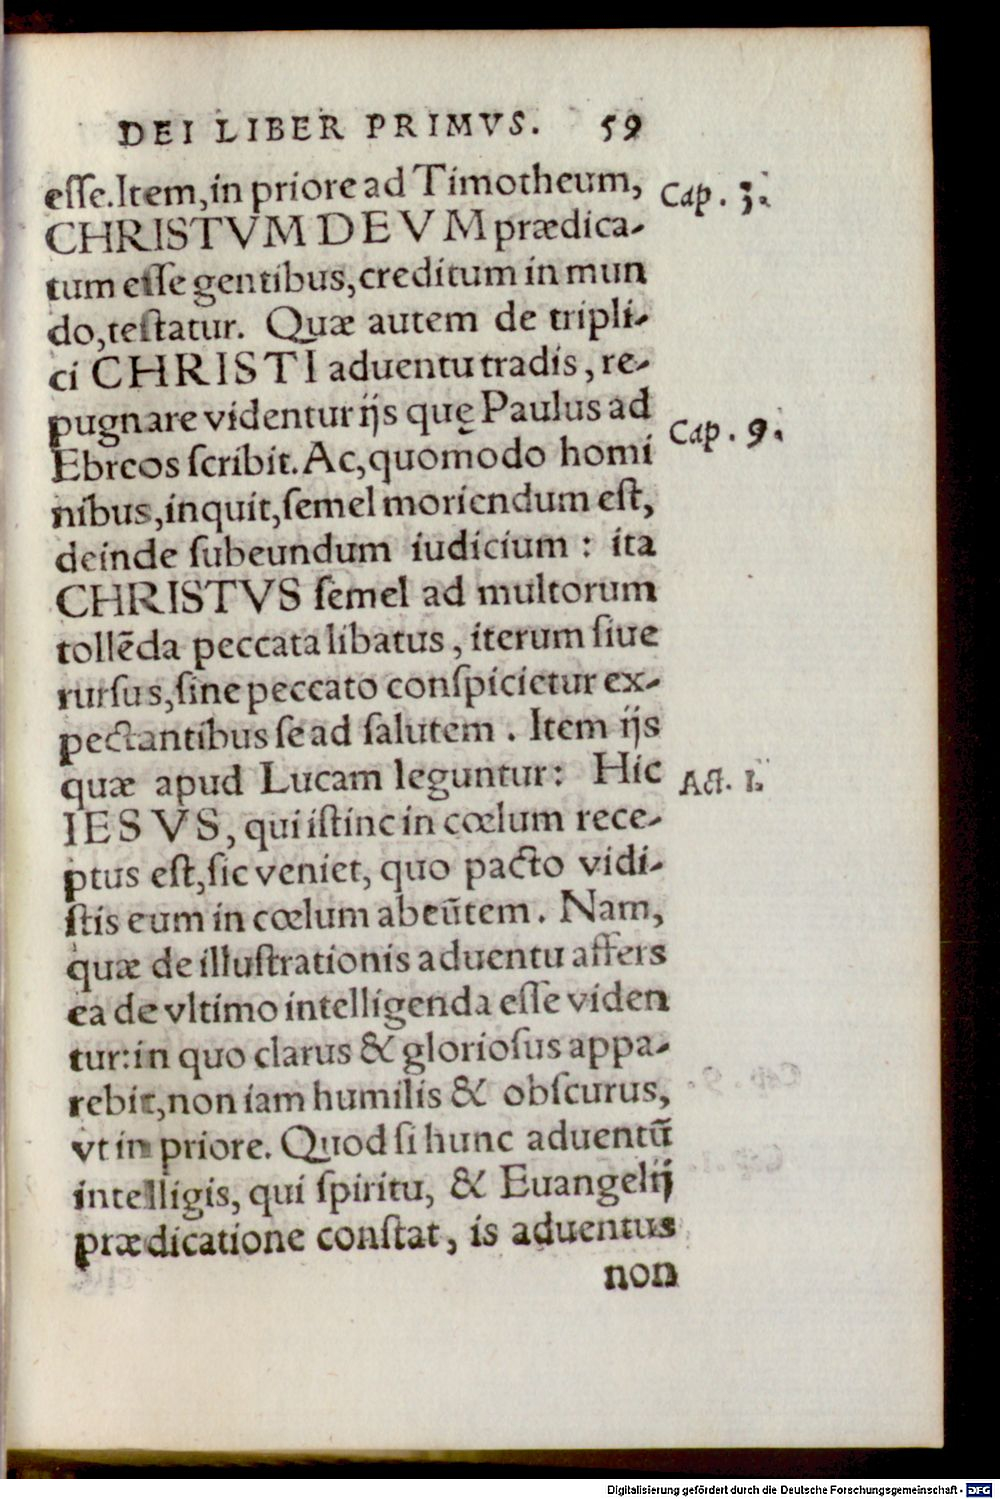 DEI LIBER PRIMVS. 59
eſſe. Item, in priore ad Timotheum, Cap. 3.
CHRISTVM DEVM prædica-
tum eſſe gentibus, creditum in mun
do, teſtatur. Quæ autem de tripli-
ci CHRISTI aduentu tradis, re-
pugnare videntur ijs quę Paulus ad
Ebreos ſcribit. Ac, quomodo homi Cap. 9.
nibus, inquit, ſemel moriendum eſt,
deinde ſubeundum iudicium: ita
CHRISTVS ſemel ad multorum
tollēda peccata libatus, iterum ſiue
rurſus, ſine peccato conſpicietur ex-
pectantibus ſe ad ſalutem. Item ijs
quæ apud Lucam leguntur: Hic Act. 1.
IESVS, qui iſtinc in cœlum rece-
ptus eſt, ſic veniet, quo pacto vidi-
ſtis eum in cœlum abeūtem. Nam,
quæ de illuſtrationis aduentu affers
ea de vltimo intelligenda eſſe viden
tur: in quo clarus & glorioſus appa-
rebit, non iam humilis & obſcurus,
vt in priore. Quod ſi hunc aduentū
intelligis, qui ſpiritu, & Euangelij
prædicatione conſtat, is aduentus
non
Digitalisierung gefördert durch die Deutsche Forschungsgemeinschaft - DFG